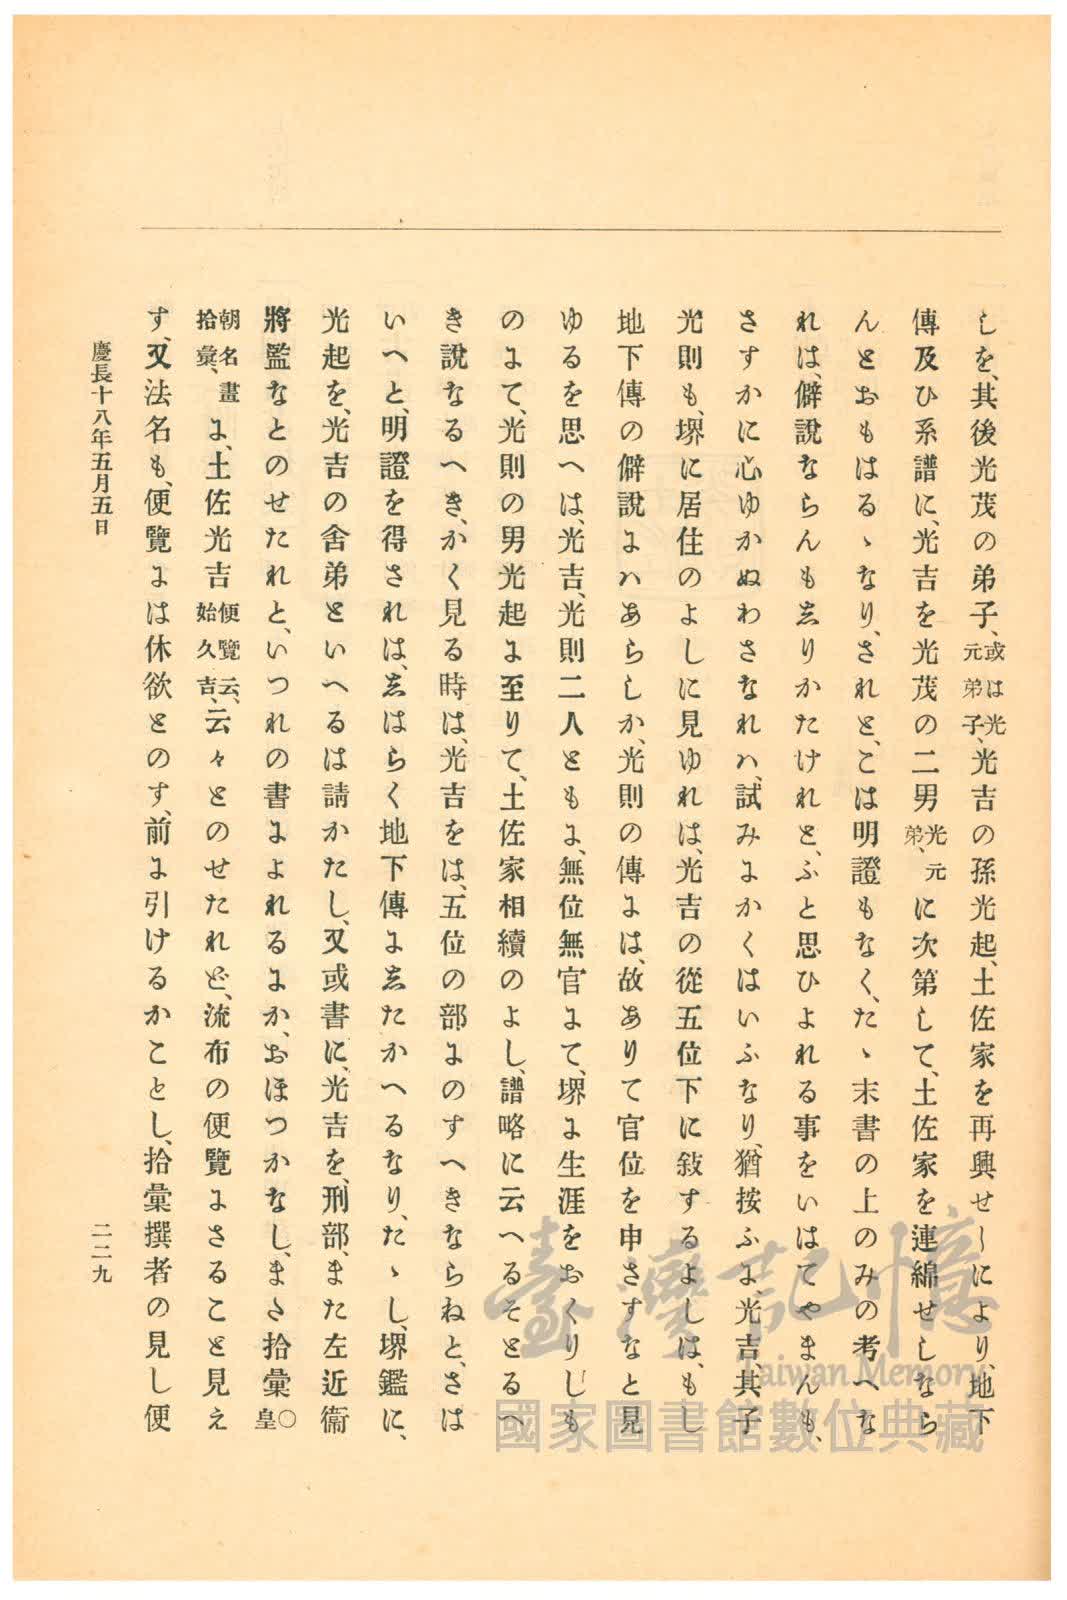 しを、其後光茂の弟子、或は光元弟子、光吉の孫光起、土佐家を再興せしにより、地下
傳及ひ系譜に、光吉を光茂の二男光元弟、に次第して、土佐家を連綿せしなら
んとおもはるゝなり、されと、こは明證もなく、たゝ末書の上のみの考へな
れは、僻説ならんもゑりかたけれと、ふと思ひよれる事をいはてやまんも、
さすかに心ゆかぬわさなれハ、試みにかくはいふなり、猶按ふに光吉、其子
光則も、堺に居住のよしに見ゆれは、光吉の從五位下に敍するよしは、もし
地下傳の僻説にハあらしか、光則の傳には、故ありて官位を申さすなと見
ゆるを思へは、光吉、光則二人ともに、無位無官にて、堺に生涯をおくりしも
のにて、光則の男光起に至りて、土佐家相續のよし、譜略に云へるそとるへ
き説なるへき、かく見る時は、光吉をは、五位の部にのすへきならねと、さは
いへと、明證を得されは、ゑはらく地下傳にゑたかへるなり、たゝし、堺鑑に、
光起を、光吉の舍弟といへるは請かたし、又或書に、光吉を、刑部、また左近衞
將監なとのせたれと、いつれの書によれるにか、おほつかなし、また拾彙〇皇
朝名畫拾彙、に、土佐光吉便覽云、始久吉、云々とのせたれど、流布の便覽にさること見え
す、又法名も、便覽には休欲とのす、前に引けるかことし、拾彙撰者の見し便
慶長十八年五月五日
二二九
臺灣記憶
Taiwan Memory
國家圖書館數位典藏